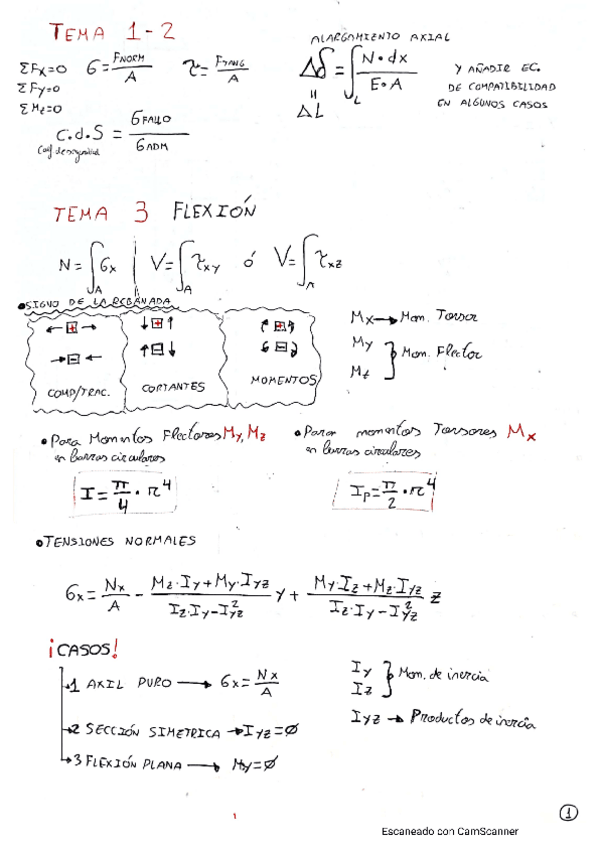 TEMA 1-2
ΣFx=0 σ=FNORM/A τ=FTANG/A
ΣFy=0
ΣMz=0
C.d.S = σFALLO/σADM
Coef de seguridad
ALARGAMIENTO AXIAL
Δδ = ∫L N·dx/E·A
=
ΔL
Y AÑADIR EC.
DE COMPATIBILIDAD
EN ALGUNOS CASOS
TEMA 3 FLEXIÓN
N=∫A σx | V=∫A τxy ó V=∫A τxz
•SIGNO DE LA REBANADA
← + → ↓ + ↑
→ - ← ↑ - ↓
COMP/TRAC. CORTANTES MOMENTOS
Mx → Mom. Torsor
My
Mz } Mom. Flector
•Para Momentos Flectores My, Mz
en barras circulares
I = π/4 · r^4
•Para momentos Torsores Mx
en barras circulares
Ip = π/2 · r^4
•TENSIONES NORMALES
σx = Nx/A - (Mz·Iy+My·Iyz)/(Iz·Iy-Iyz²) y + (My·Iz+Mz·Iyz)/(Iz·Iy-Iyz²) z
¡CASOS!
1 AXIL PURO → σx = Nx/A
2 SECCIÓN SIMETRICA → Iyz=Ø
3 FLEXIÓN PLANA → My=Ø
Iy
Iz } Mom. de inercia
Iyz → Productos de inercia
1
1
Escaneado con CamScanner